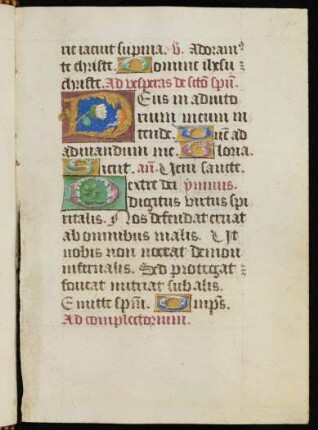 rit iacuit supina. v. Adoram9
te christe. Domine ihesu
christe. Ad vesperas de scto spu.
Deus in adiuto
rium meum in
tende. Dne ad
adiuvandum me. Gloria.
Sicut. an. Veni sancte.
Dextre dei ymnus.
digitus virtus spi
ritalis. Nos defendat eruat
ab omnibus malis. Ut
nobis non noceat demon
infernalis. Sed protegat
foveat nutriat sub alis.
Emitte spm. Omps.
Ad complectorium.